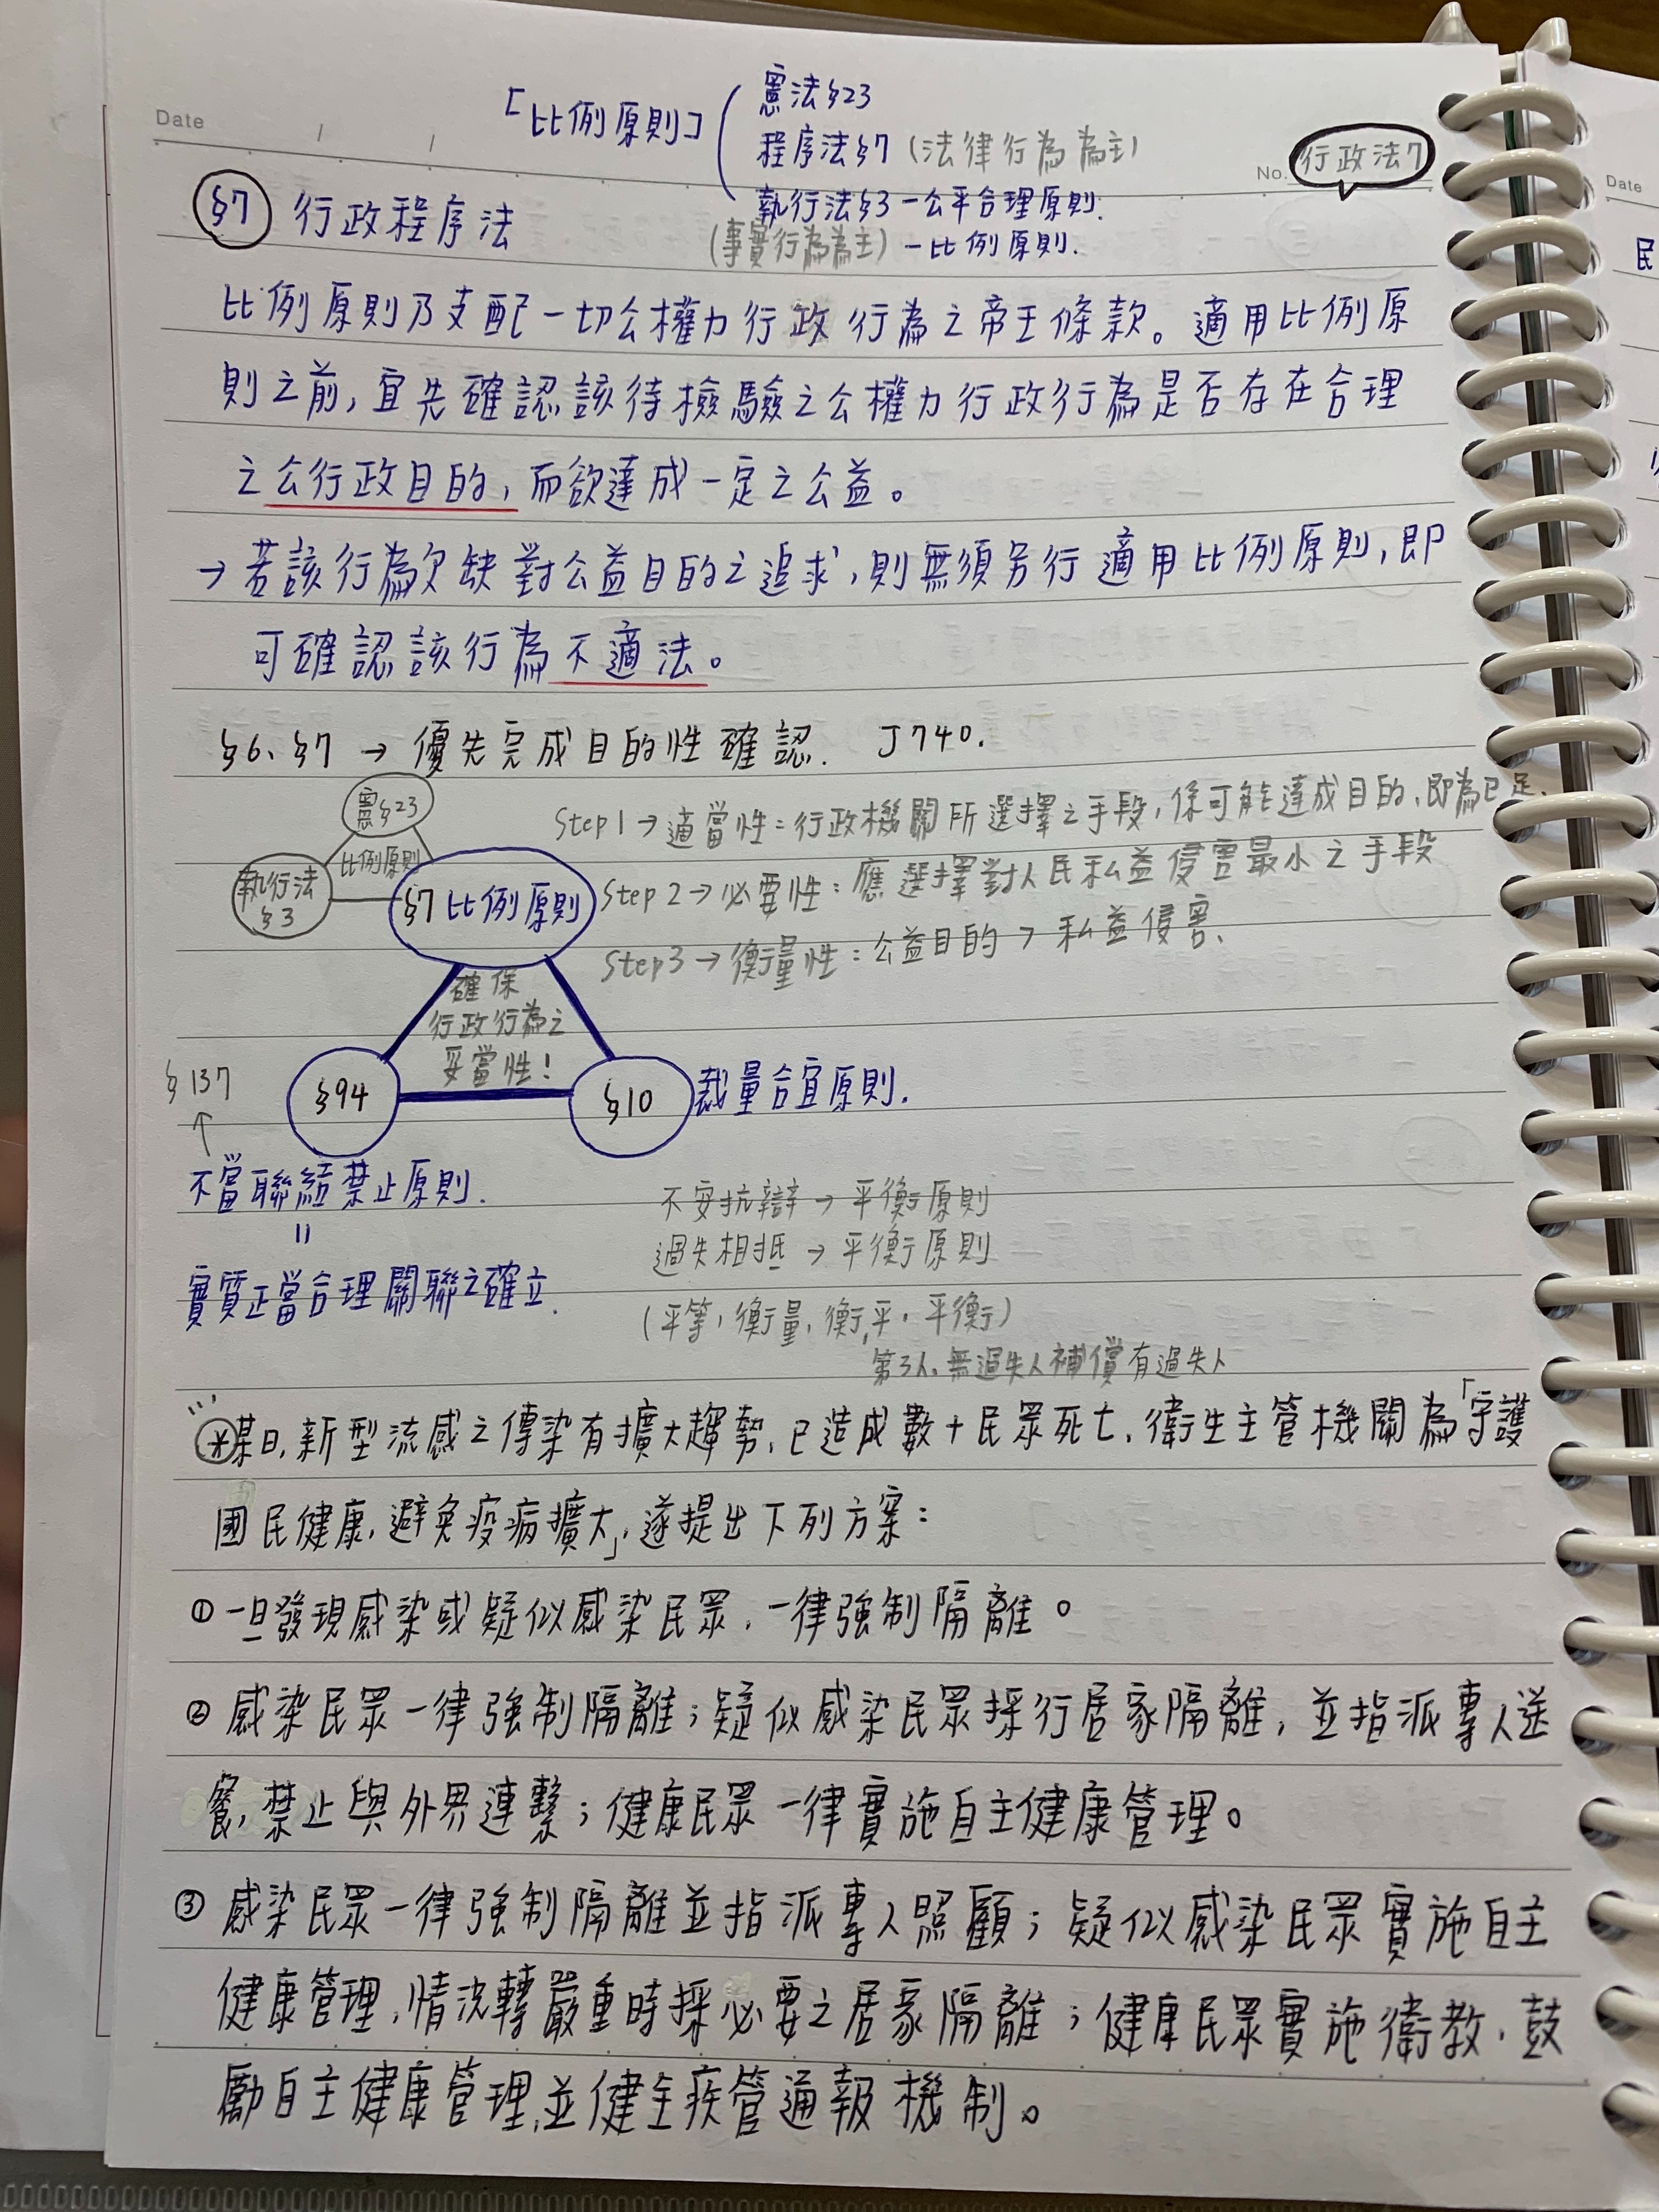 Date
「比例原則」
憲法§23
程序法§7 (法律行為為主)
執行法§3-公平合理原則.
(事實行為為主) -比例原則.
No. 行政法7
Date
§7 行政程序法
比例原則乃支配一切公權力行政行為之帝王條款。適用比例原
則之前,宜先確認該待檢驗之公權力行政行為是否存在合理
之公行政目的,而欲達成一定之公益。
→若該行為欠缺對公益目的之追求,則無須另行適用比例原則,即
可確認該行為不適法。
§6、§7 → 優先完成目的性確認. J740.
憲§23
比例原則
執行法
§3
§7 比例原則
Step1→適當性:行政機關所選擇之手段,係可能達成目的、即為已足.
Step2→必要性:應選擇對人民私益侵害最小之手段
Step3→衡量性:公益目的 > 私益侵害、
確保
行政行為之
妥當性!
§137
↑
§94
§10 裁量合宜原則.
不當聯結禁止原則.
=
實質正當合理關聯之確立.
不安抗辯→平衡原則
過失相抵→平衡原則
(平等,衡量,衡平,平衡)
第3人、無過失人補償有過失人
※某日,新型流感之傳染有擴大趨勢,已造成數十民眾死亡,衛生主管機關為「守護
國民健康,避免疫病擴大」,遂提出下列方案:
①一旦發現感染或疑似感染民眾,一律強制隔離。
②感染民眾一律強制隔離;疑似感染民眾採行居家隔離,並指派專人送
餐,禁止與外界連繫;健康民眾一律實施自主健康管理。
③感染民眾一律強制隔離並指派專人照顧;疑似感染民眾實施自主
健康管理,情況轉嚴重時採必要之居家隔離;健康民眾實施衛教,鼓
勵自主健康管理,並健全疾管通報機制。
民